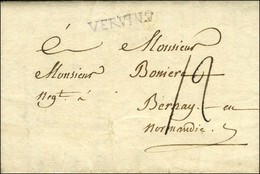 VERVINS
à Monsieur
Monsieur Boniere
Negt. à Bernay en
Normandie